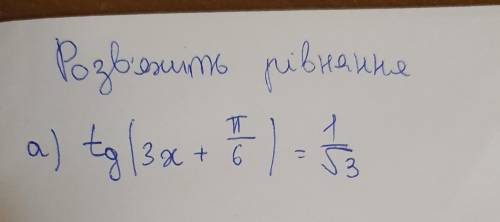 Розв'яжить рівняння
а) tg(3x + π/6) = 1/√3